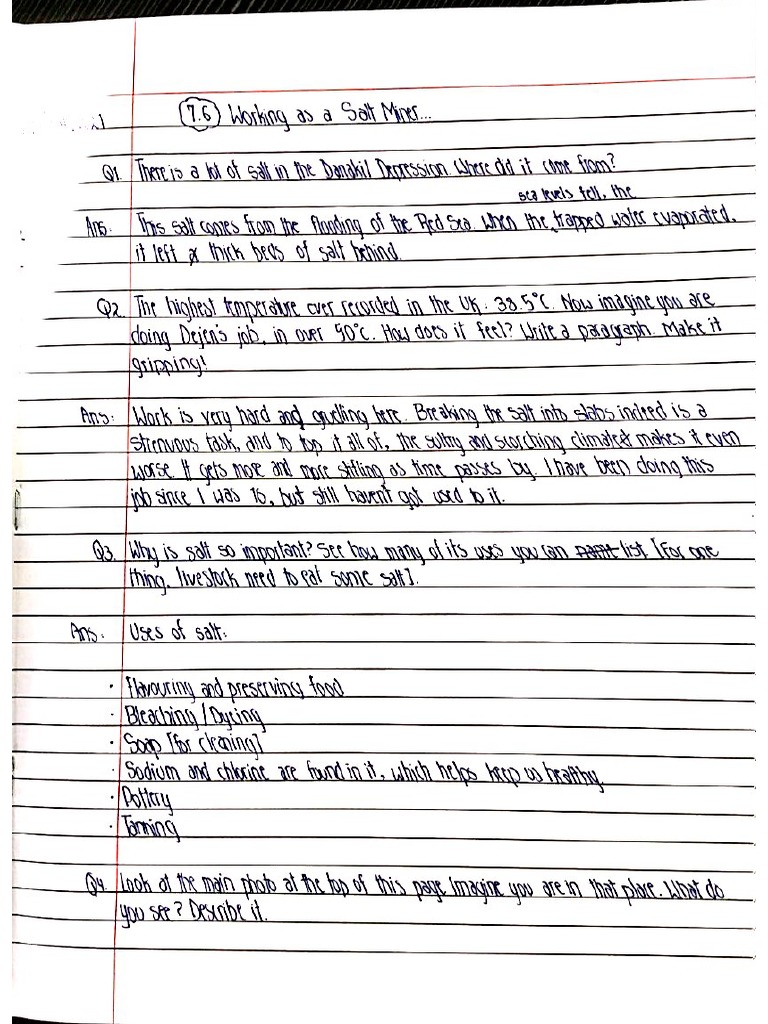 7.6 Working as a Salt Miner...
Q1. There is a lot of salt in the Danakil Depression. Where did it come from?
sea levels fell, the
Ans. This salt comes from the flooding of the Red Sea. When the trapped water evaporated,
it left thick beds of salt behind.
Q2. The highest temperature ever recorded in the UK: 38.5°C. Now imagine you are
doing Dejen's job, in over 50°C. How does it feel? Write a paragraph. Make it
gripping!
Ans: Work is very hard and gruelling here. Breaking the salt into slabs indeed is a
strenuous task, and to top it all of, the sultry and scorching climate makes it even
worse. It gets more and more stifling as time passes by. I have been doing this
job since I was 16, but still haven't got used to it.
Q3. Why is salt so important? See how many of its uses you can list [For one
thing, livestock need to eat some salt].
Ans. Uses of salt:
· Flavouring and preserving food
· Bleaching / Dyeing
· Soap [for cleaning]
· Sodium and chlorine are found in it, which helps keep us healthy.
· Pottery
· Tanning
Q4. Look at the main photo at the top of this page. Imagine you are in that place. What do
you see? Describe it.